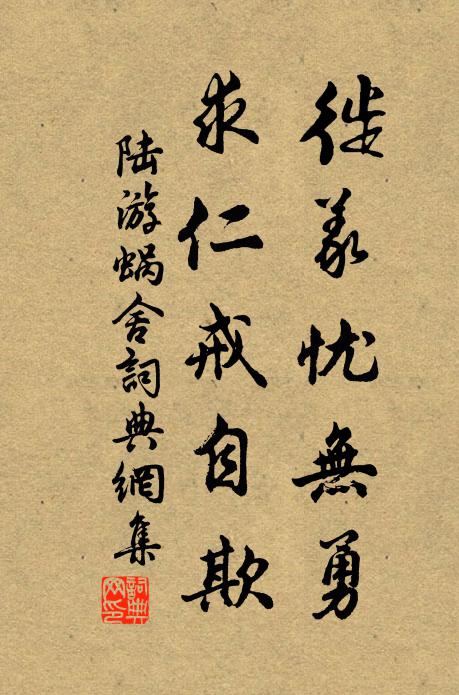 徙義忧無勇
求仁戒自欺
陆游蜗舍詞典網集
詞典網印